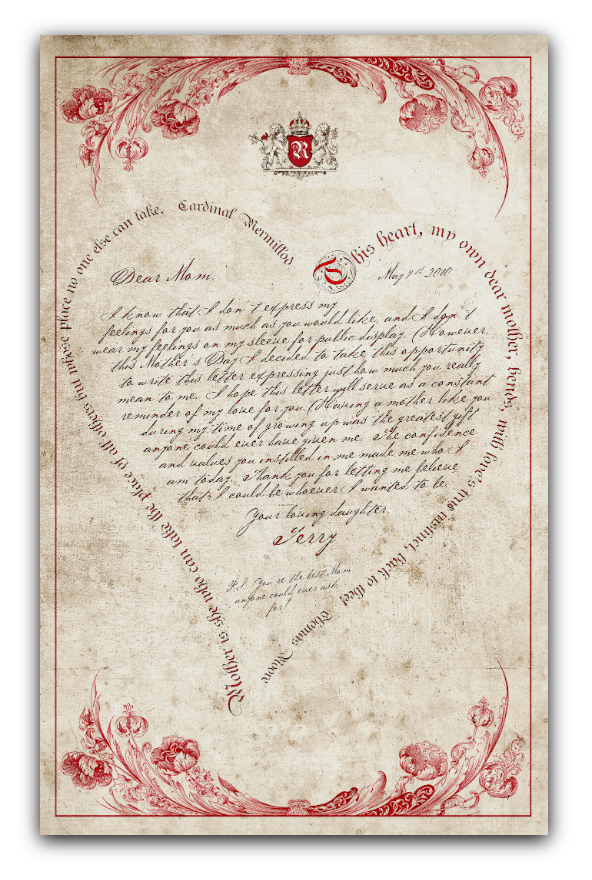 R
Mother is she who can take the place of all others but whose place no one else can take. Cardinal Mermillod
This heart, my own dear mother, bends, with love's true instinct, back to thee! Thomas Moore
May 9th 2010
Dear Mom,
I know that I don't express my
feelings for you as much as you would like, and I don't
wear my feelings on my sleeve for public display. (However,
this Mother's Day I decided to take this opportunity
to write this letter expressing just how much you really
mean to me. I hope this letter will serve as a constant
reminder of my love for you. (Having a mother like you
during my time of growing up was the greatest gift
anyone could ever have given me. The confidence
and values you instilled in me made me who I
am today. Thank you for letting me believe
that I could be whoever I wanted to be.
Your loving daughter,
Terry
P.S. You're the best Mom
anyone could ever ask
for!